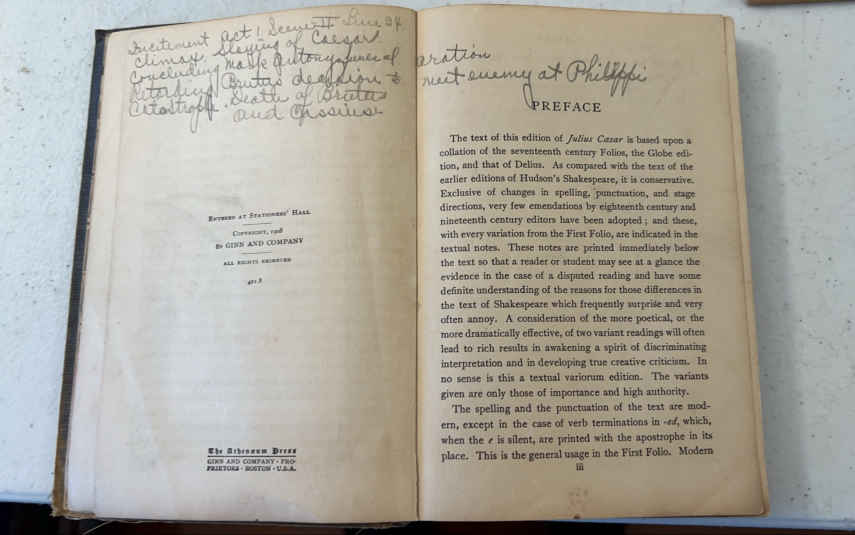 Excitement Act 1 Scene II Line 34
Climax. Slaying of Caesar.
Concluding Mark Antony funeral oration
Brutus decision to meet enemy at Philippi
Catastrophe. Death of Brutus
and Cassius
ENTERED AT STATIONERS' HALL
COPYRIGHT, 1908
BY GINN AND COMPANY
ALL RIGHTS RESERVED
421.8
The Athenæum Press
GINN AND COMPANY · PRO-
PRIETORS · BOSTON · U.S.A.
PREFACE
The text of this edition of Julius Cæsar is based upon a
collation of the seventeenth century Folios, the Globe edi-
tion, and that of Delius. As compared with the text of the
earlier editions of Hudson's Shakespeare, it is conservative.
Exclusive of changes in spelling, punctuation, and stage
directions, very few emendations by eighteenth century and
nineteenth century editors have been adopted; and these,
with every variation from the First Folio, are indicated in the
textual notes. These notes are printed immediately below
the text so that a reader or student may see at a glance the
evidence in the case of a disputed reading and have some
definite understanding of the reasons for those differences in
the text of Shakespeare which frequently surprise and very
often annoy. A consideration of the more poetical, or the
more dramatically effective, of two variant readings will often
lead to rich results in awakening a spirit of discriminating
interpretation and in developing true creative criticism. In
no sense is this a textual variorum edition. The variants
given are only those of importance and high authority.
The spelling and the punctuation of the text are mod-
ern, except in the case of verb terminations in -ed, which,
when the e is silent, are printed with the apostrophe in its
place. This is the general usage in the First Folio. Modern
iii